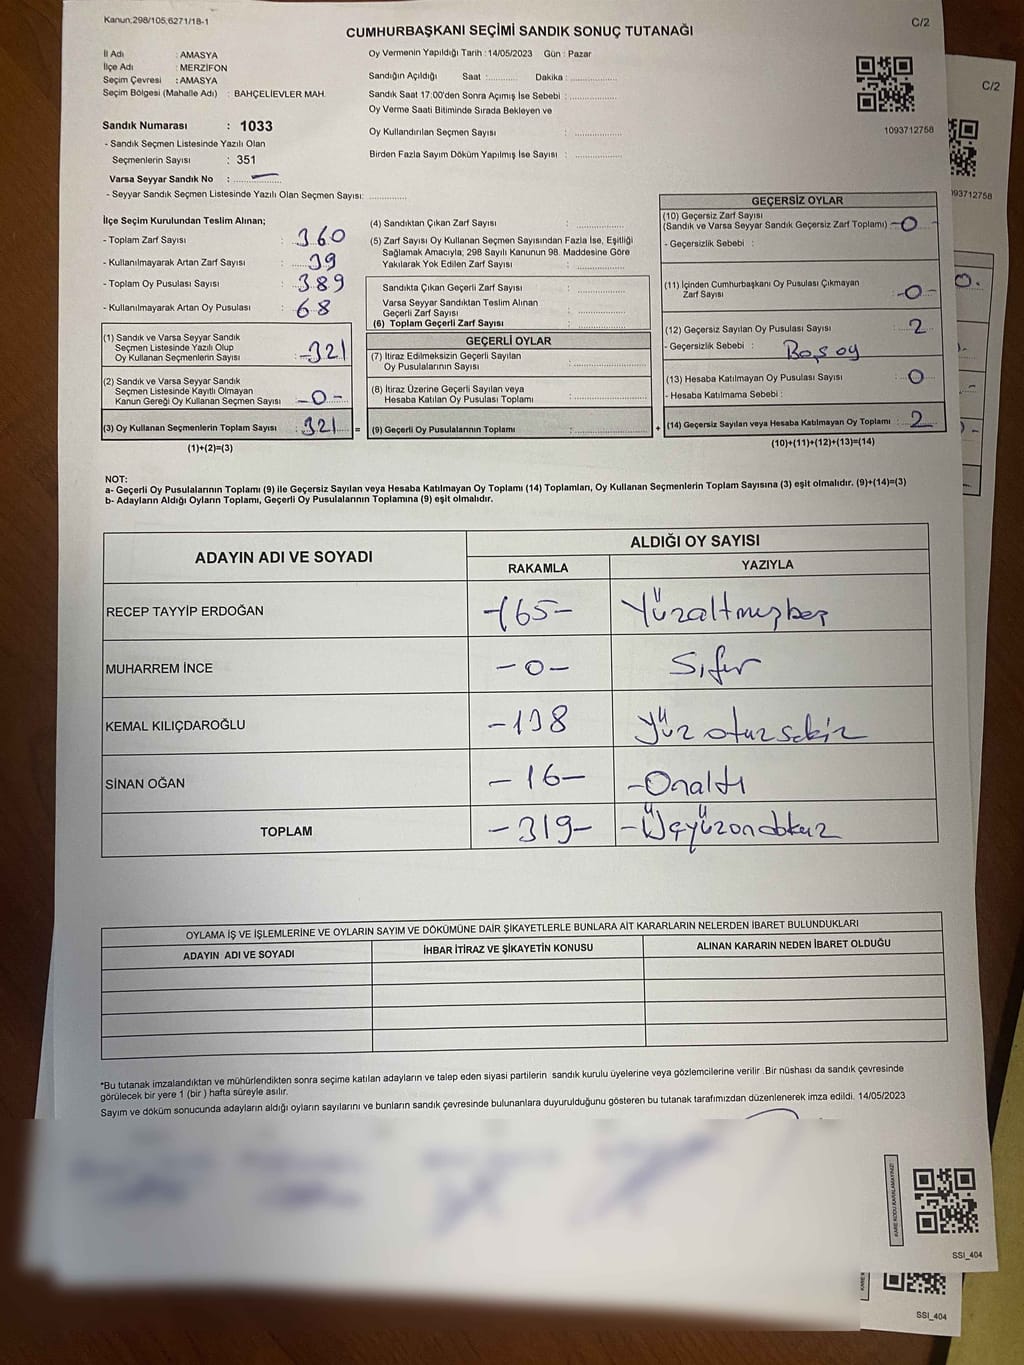 Kanun:298/105,6271/18-1
C/2
CUMHURBAŞKANI SEÇİMİ SANDIK SONUÇ TUTANAĞI
İl Adı : AMASYA
İlçe Adı : MERZİFON
Seçim Çevresi : AMASYA
Seçim Bölgesi (Mahalle Adı) : BAHÇELİEVLER MAH.
Oy Vermenin Yapıldığı Tarih : 14/05/2023 Gün : Pazar
Sandığın Açıldığı Saat :.......... Dakika : ................
Sandık Saat 17:00'den Sonra Açımış İse Sebebi : ................
Oy Verme Saati Bitiminde Sırada Bekleyen ve
Oy Kullandırılan Seçmen Sayısı : ................
Birden Fazla Sayım Döküm Yapılmış İse Sayısı : ................
1093712758
Sandık Numarası : 1033
- Sandık Seçmen Listesinde Yazılı Olan
Seçmenlerin Sayısı : 351
Varsa Seyyar Sandık No :
- Seyyar Sandık Seçmen Listesinde Yazılı Olan Seçmen Sayısı: ............
İlçe Seçim Kurulundan Teslim Alınan;
- Toplam Zarf Sayısı : 360
- Kullanılmayarak Artan Zarf Sayısı : 39
- Toplam Oy Pusulası Sayısı : 389
- Kullanılmayarak Artan Oy Pusulası : 68
(1) Sandık ve Varsa Seyyar Sandık
Seçmen Listesinde Yazılı Olup
Oy Kullanan Seçmenlerin Sayısı : -321
(2) Sandık ve Varsa Seyyar Sandık
Seçmen Listesinde Kayıtlı Olmayan
Kanun Gereği Oy Kullanan Seçmen Sayısı -0-
(3) Oy Kullanan Seçmenlerin Toplam Sayısı : 321 =
(1)+(2)=(3)
(4) Sandıktan Çıkan Zarf Sayısı : ................
(5) Zarf Sayısı Oy Kullanan Seçmen Sayısından Fazla İse, Eşitliği
Sağlamak Amacıyla; 298 Sayılı Kanunun 98. Maddesine Göre
Yakılarak Yok Edilen Zarf Sayısı : ................
Sandıkta Çıkan Geçerli Zarf Sayısı : ................
Varsa Seyyar Sandıktan Teslim Alınan
Geçerli Zarf Sayısı : ................
(6) Toplam Geçerli Zarf Sayısı : ................
GEÇERLİ OYLAR
(7) İtiraz Edilmeksizin Geçerli Sayılan
Oy Pusulalarının Sayısı : ................
(8) İtiraz Üzerine Geçerli Sayılan veya
Hesaba Katılan Oy Pusulası Toplamı : ................
(9) Geçerli Oy Pusulalarının Toplamı : ................ +
GEÇERSİZ OYLAR
(10) Geçersiz Zarf Sayısı
(Sandık ve Varsa Seyyar Sandık Geçersiz Zarf Toplamı) -0-
- Geçersizlik Sebebi :
(11) İçinden Cumhurbaşkanı Oy Pusulası Çıkmayan
Zarf Sayısı -0-
(12) Geçersiz Sayılan Oy Pusulası Sayısı : 2
- Geçersizlik Sebebi : Boş oy
(13) Hesaba Katılmayan Oy Pusulası Sayısı : 0
- Hesaba Katılmama Sebebi :
(14) Geçersiz Sayılan veya Hesaba Katılmayan Oy Toplamı : 2
(10)+(11)+(12)+(13)=(14)
NOT:
a- Geçerli Oy Pusulalarının Toplamı (9) ile Geçersiz Sayılan veya Hesaba Katılmayan Oy Toplamı (14) Toplamları, Oy Kullanan Seçmenlerin Toplam Sayısına (3) eşit olmalıdır. (9)+(14)=(3)
b- Adayların Aldığı Oyların Toplamı, Geçerli Oy Pusulalarının Toplamına (9) eşit olmalıdır.
ADAYIN ADI VE SOYADI ALDIĞI OY SAYISI
RAKAMLA YAZIYLA
RECEP TAYYİP ERDOĞAN -165- Yüzaltmışbeş
MUHARREM İNCE -0- Sıfır
KEMAL KILIÇDAROĞLU -138 Yüz otuz sekiz
SİNAN OĞAN -16- -Onaltı
TOPLAM -319- -Üçyüzondokuz
OYLAMA İŞ VE İŞLEMLERİNE VE OYLARIN SAYIM VE DÖKÜMÜNE DAİR ŞİKAYETLERLE BUNLARA AİT KARARLARIN NELERDEN İBARET BULUNDUKLARI
ADAYIN ADI VE SOYADI İHBAR İTİRAZ VE ŞİKAYETİN KONUSU ALINAN KARARIN NEDEN İBARET OLDUĞU
*Bu tutanak imzalandıktan ve mühürlendikten sonra seçime katılan adayların ve talep eden siyasi partilerin sandık kurulu üyelerine veya gözlemcilerine verilir .Bir nüshası da sandık çevresinde
görülecek bir yere 1 (bir ) hafta süreyle asılır.
Sayım ve döküm sonucunda adayların aldığı oyların sayılarını ve bunların sandık çevresinde bulunanlara duyurulduğunu gösteren bu tutanak tarafımızdan düzenlenerek imza edildi. 14/05/2023
KARE KODU KARALAMAYINIZ!
SSI_404
C/2
93712758
0.
KARE K
SSI_404